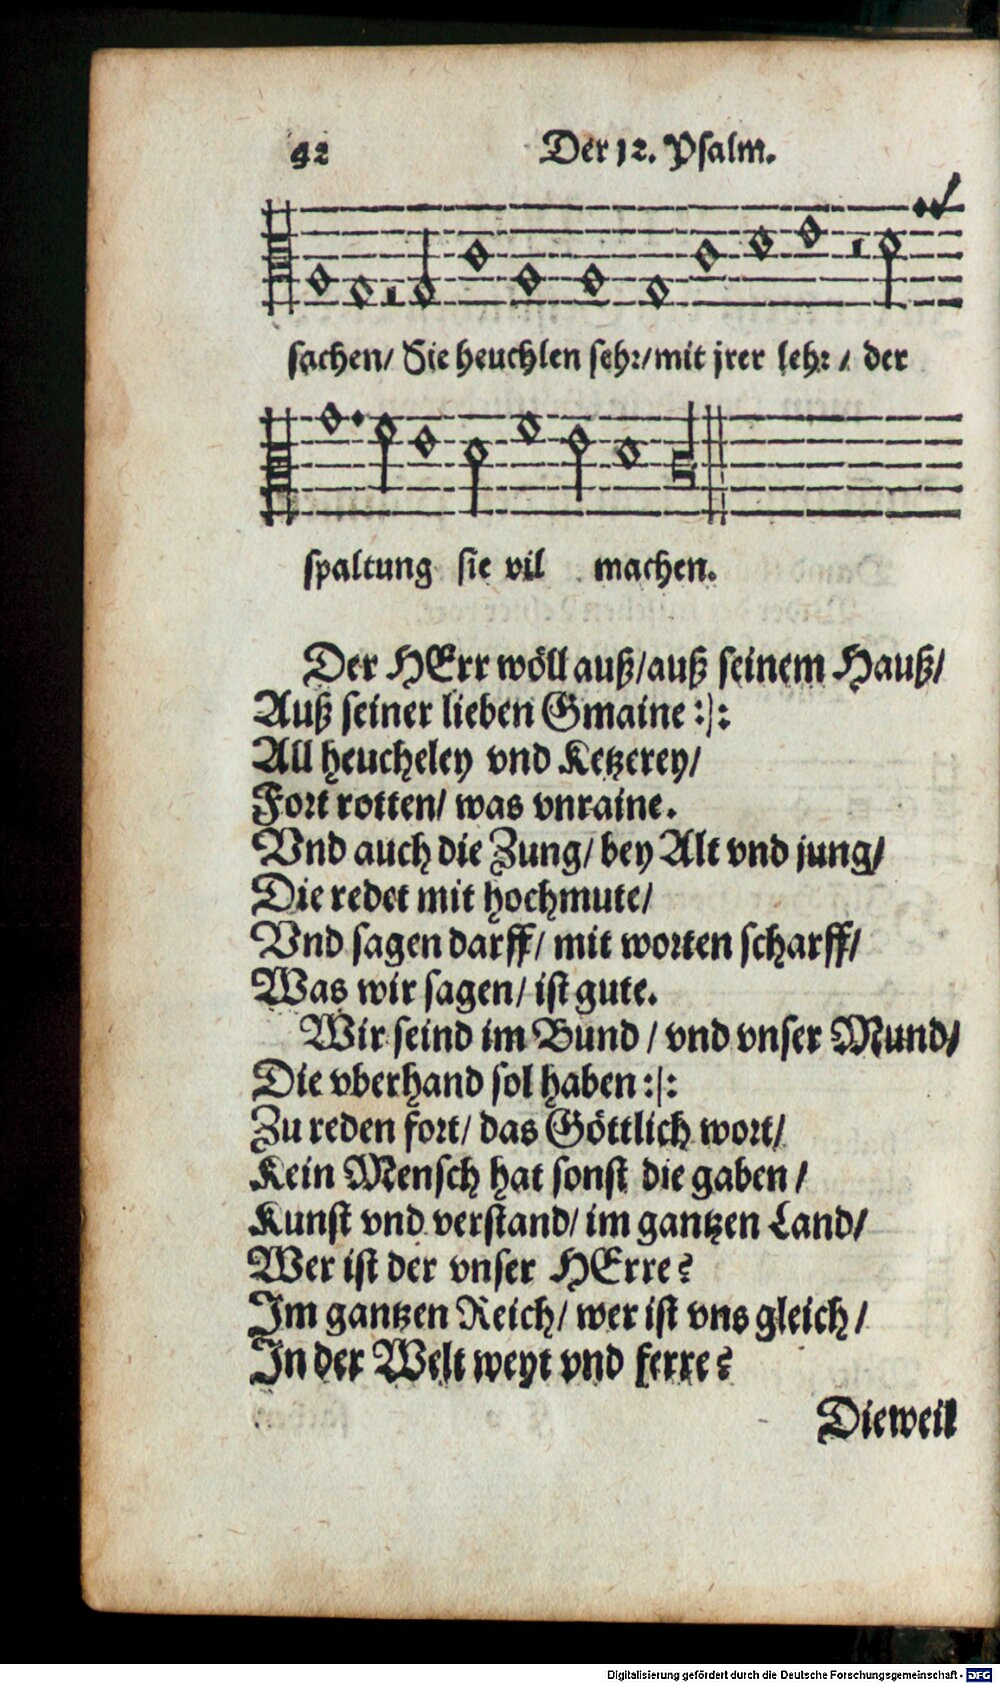 42
Der 12. Psalm.
sachen/ Sie heuchlen sehr/ mit jrer lehr / der
spaltung sie vil machen.
Der HErr wöll auß/ auß seinem Hauß/
Auß seiner lieben Gmaine :|:
All heucheley vnd Ketzerey/
Fort rotten/ was vnraine.
Vnd auch die Zung/ bey Alt vnd jung/
Die redet mit hochmute/
Vnd sagen darff/ mit worten scharff/
Was wir sagen/ ist gute.
Wir seind im Bund / vnd vnser Mund/
Die vberhand sol haben :|:
Zu reden fort/ das Göttlich wort/
Kein Mensch hat sonst die gaben /
Kunst vnd verstand/ im gantzen Land/
Wer ist der vnser HErre?
Im gantzen Reich/ wer ist vns gleich /
In der Welt weyt vnd ferre?
Dieweil
Digitalisierung gefördert durch die Deutsche Forschungsgemeinschaft - DFG